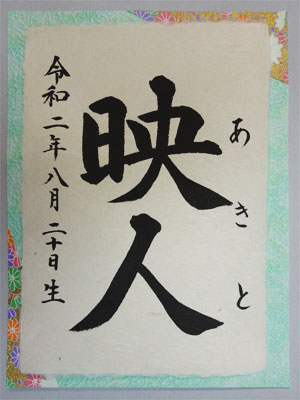 あきと
映人
令和二年八月二十日生